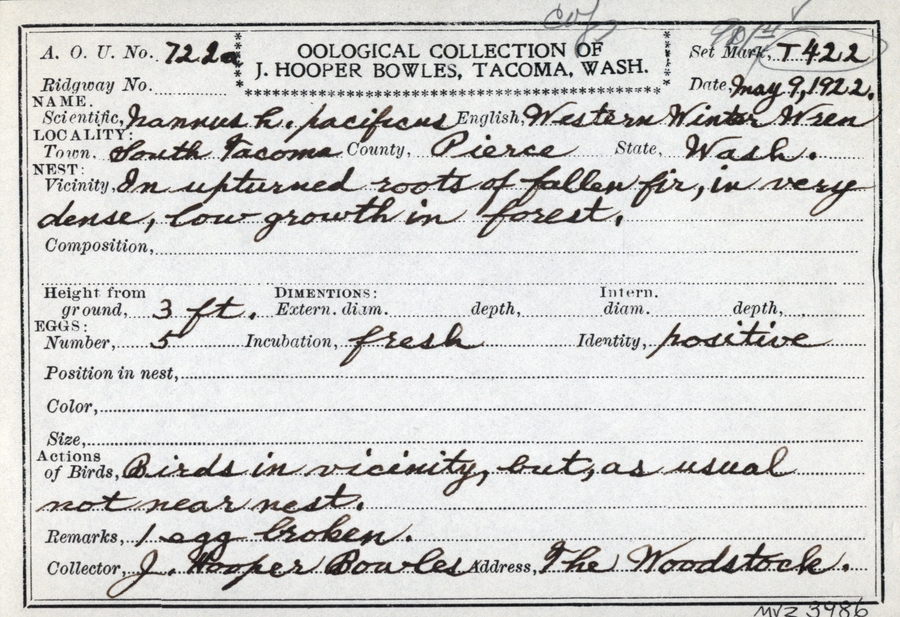 A. O. U. No. 722a OOLOGICAL COLLECTION OF Set Mark, T 422
J. HOOPER BOWLES, TACOMA, WASH.
Ridgway No. Date, May 9, 1922.
NAME.
Scientific, Nannus h. pacificus English, Western Winter Wren
LOCALITY:
Town. South Tacoma County, Pierce State, Wash.
NEST:
Vicinity, In upturned roots of fallen fir, in very
dense, low growth in forest.
Composition,
Height from DIMENTIONS: Intern.
ground, 3 ft. Extern. diam. depth, diam. depth,
EGGS:
Number, 5 Incubation, fresh Identity, positive
Position in nest,
Color,
Size,
Actions
of Birds, Birds in vicinity, but, as usual
not near nest.
Remarks, 1 egg broken.
Collector, J. Hooper Bowles Address, The Woodstock.
MVZ 3986